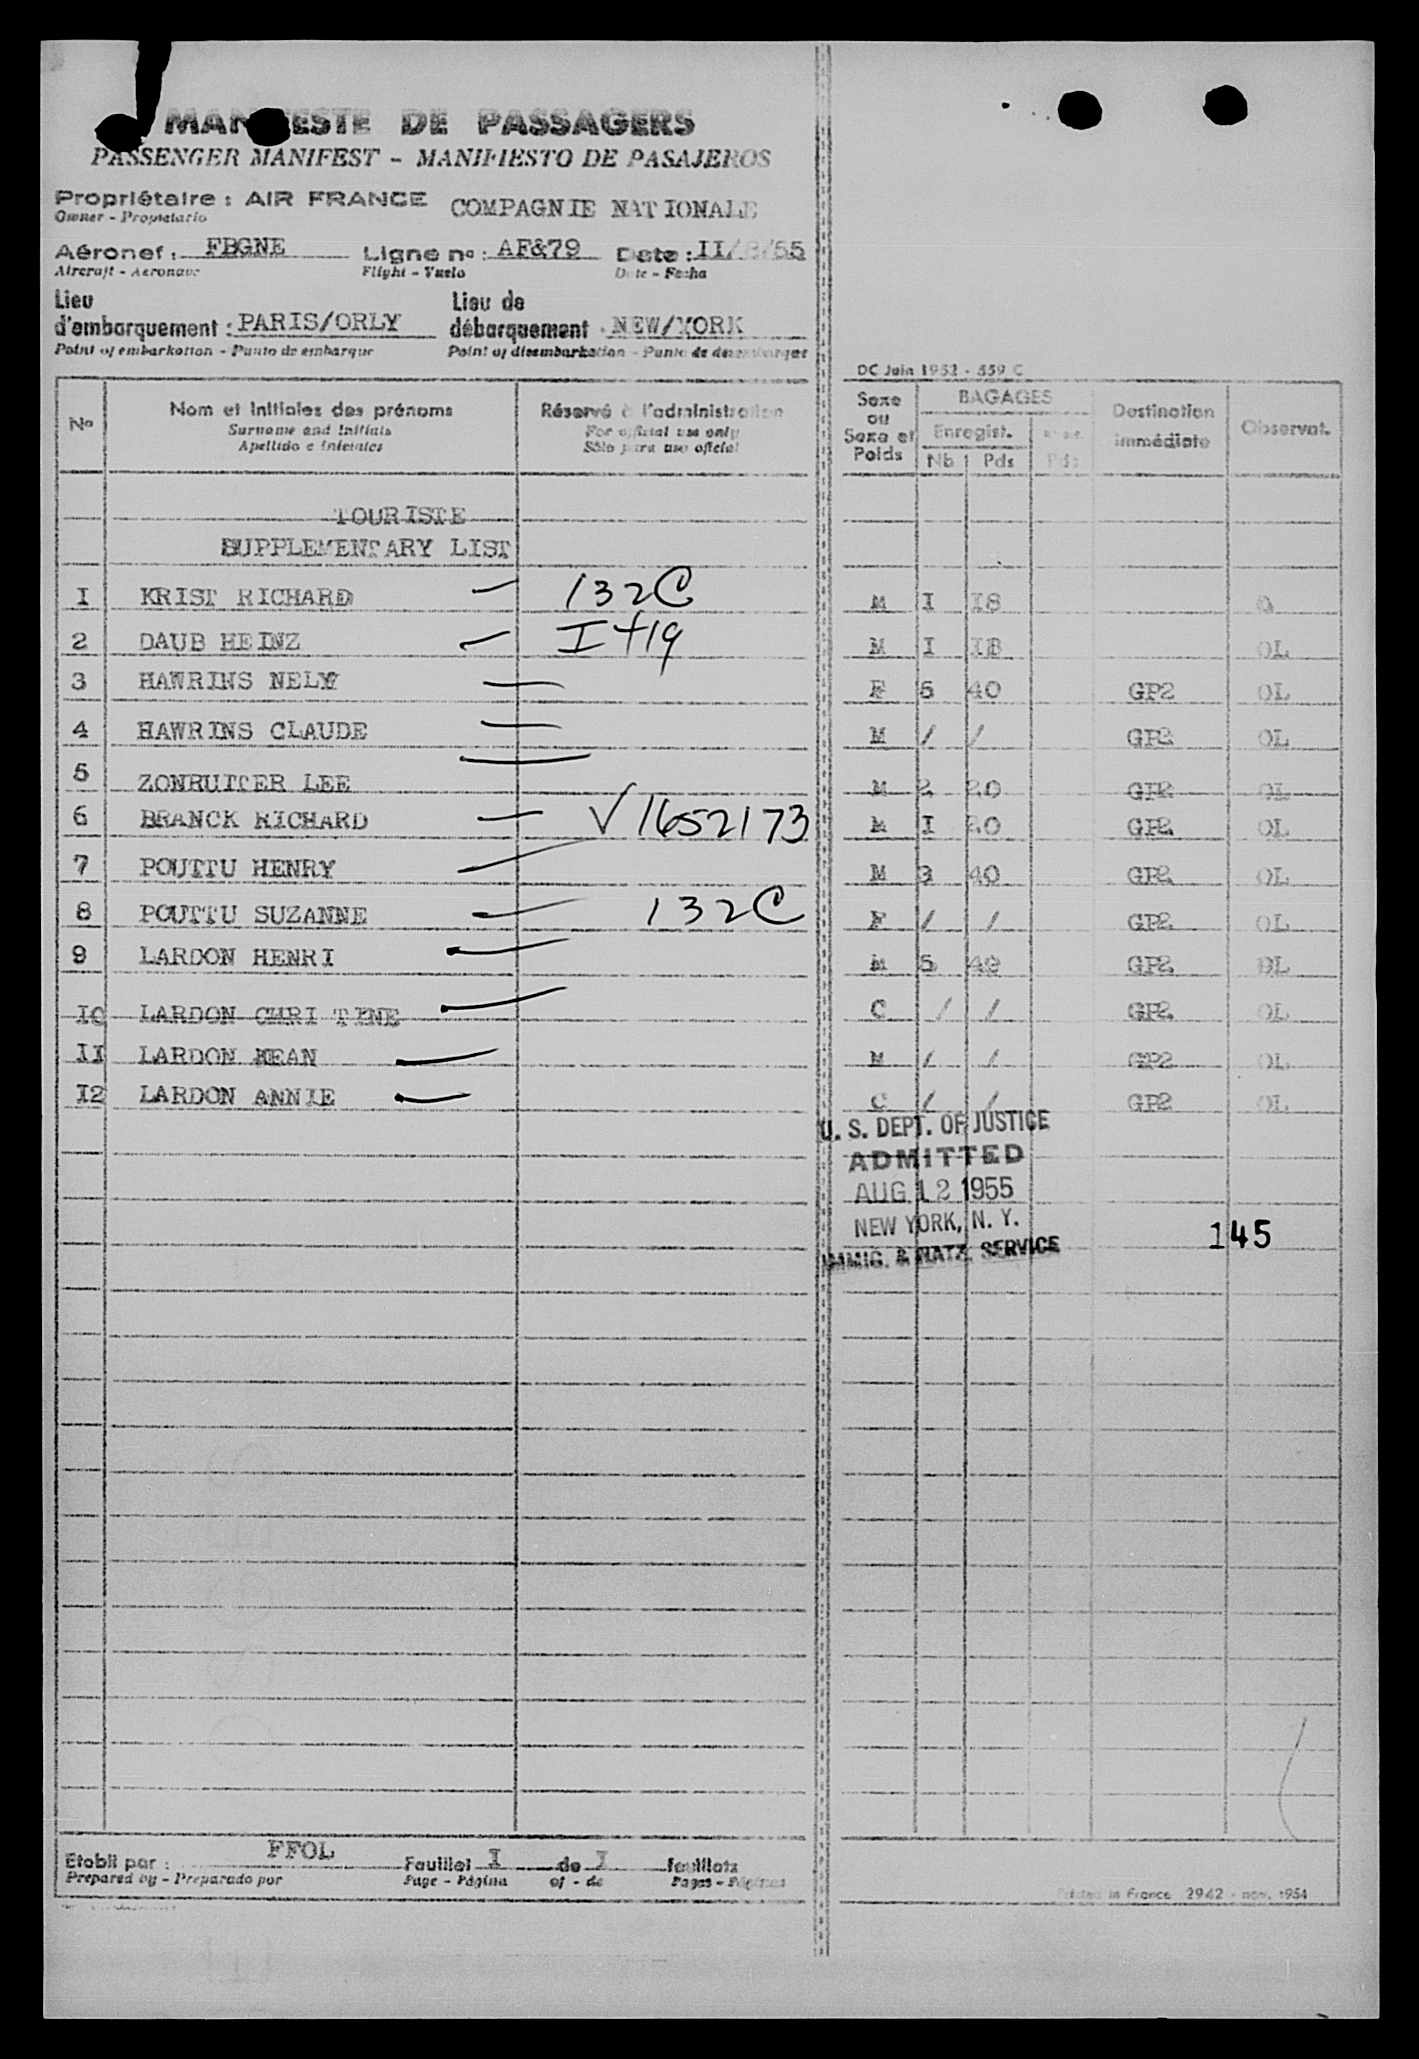 MANIFESTE DE PASSAGERS
PASSENGER MANIFEST - MANIFIESTO DE PASAJEROS
Propriétaire : AIR FRANCE COMPAGNIE NATIONALE
Owner - Propietario
Aéronef : FBGNE Ligne no : AF&79 Date : II/8/55
Aircraft - Aeronave Flight - Vuelo Date - Fecha
Lieu d'embarquement : PARIS/ORLY Lieu de débarquement : NEW/YORK
Point of embarkation - Punto de embarque Point of disembarkation - Punto de desembarque
DC Juin 1952 - 559 C
No Nom et initiales des prénoms Réservé à l'administration Sexe ou Sexe et Poids BAGAGES Destination immédiate Observat.
Surname and initials For official use only Enregist.
Apellido e iniciales Sólo para uso oficial Nb Pds Pds
TOURISTE
SUPPLEMENTARY LIST
I KRIST RICHARD — 132C M I I8
2 DAUB HEINZ — I 419 M I I8 OL
3 HAWRINS NELY — F 5 40 GP2 OL
4 HAWRINS CLAUDE — M / / GP2 OL
5 ZONRUITER LEE — M 2 20 GP2 OL
6 BRANCK RICHARD — √ 1652173 M I 20 GP2 OL
7 POUTTU HENRY — M 3 40 GP2 OL
8 POUTTU SUZANNE — 132C F / / GP2 OL
9 LARDON HENRI — M 5 40 GP2 OL
IO LARDON CHRI TINE — C / / GP2 OL
II LARDON KEAN — M / / GP2 OL
I2 LARDON ANNIE — C / / GP2 OL
U. S. DEPT. OF JUSTICE
ADMITTED
AUG 12 1955
NEW YORK, N. Y.
IMMIG. & NATZ. SERVICE
145
Etabli par : FFOL Feuillet I de I feuillets
Prepared by - Preparado por Page - Página of - de Pages - Páginas
Printed in France 2942 - nov. 1954